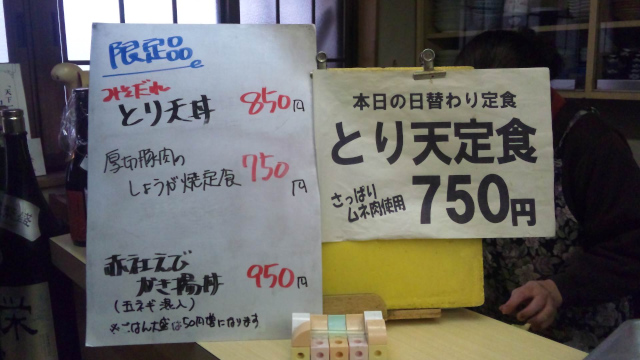 限定品
みそだれ
とり天丼 850円
厚切豚肉の
しょうが焼定食 750円
赤社えび
かき揚丼 950円
(玉ネギ混入)
※ごはん大盛は50円増になります
本日の日替わり定食
とり天定食
さっぱり
ムネ肉使用 750円
栄